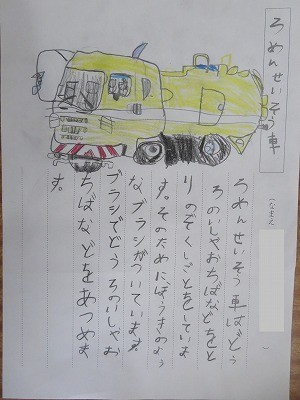 ろめんせいそう車
(なまえ )
ろめんせいそう車はどう
ろのいしやおちばなどをと
りのぞくしごとをしていま
す。そのためにほうきのよう
なブラシがついています。
ブラシでどうろのいしやお
ちばなどをあつめま
す。